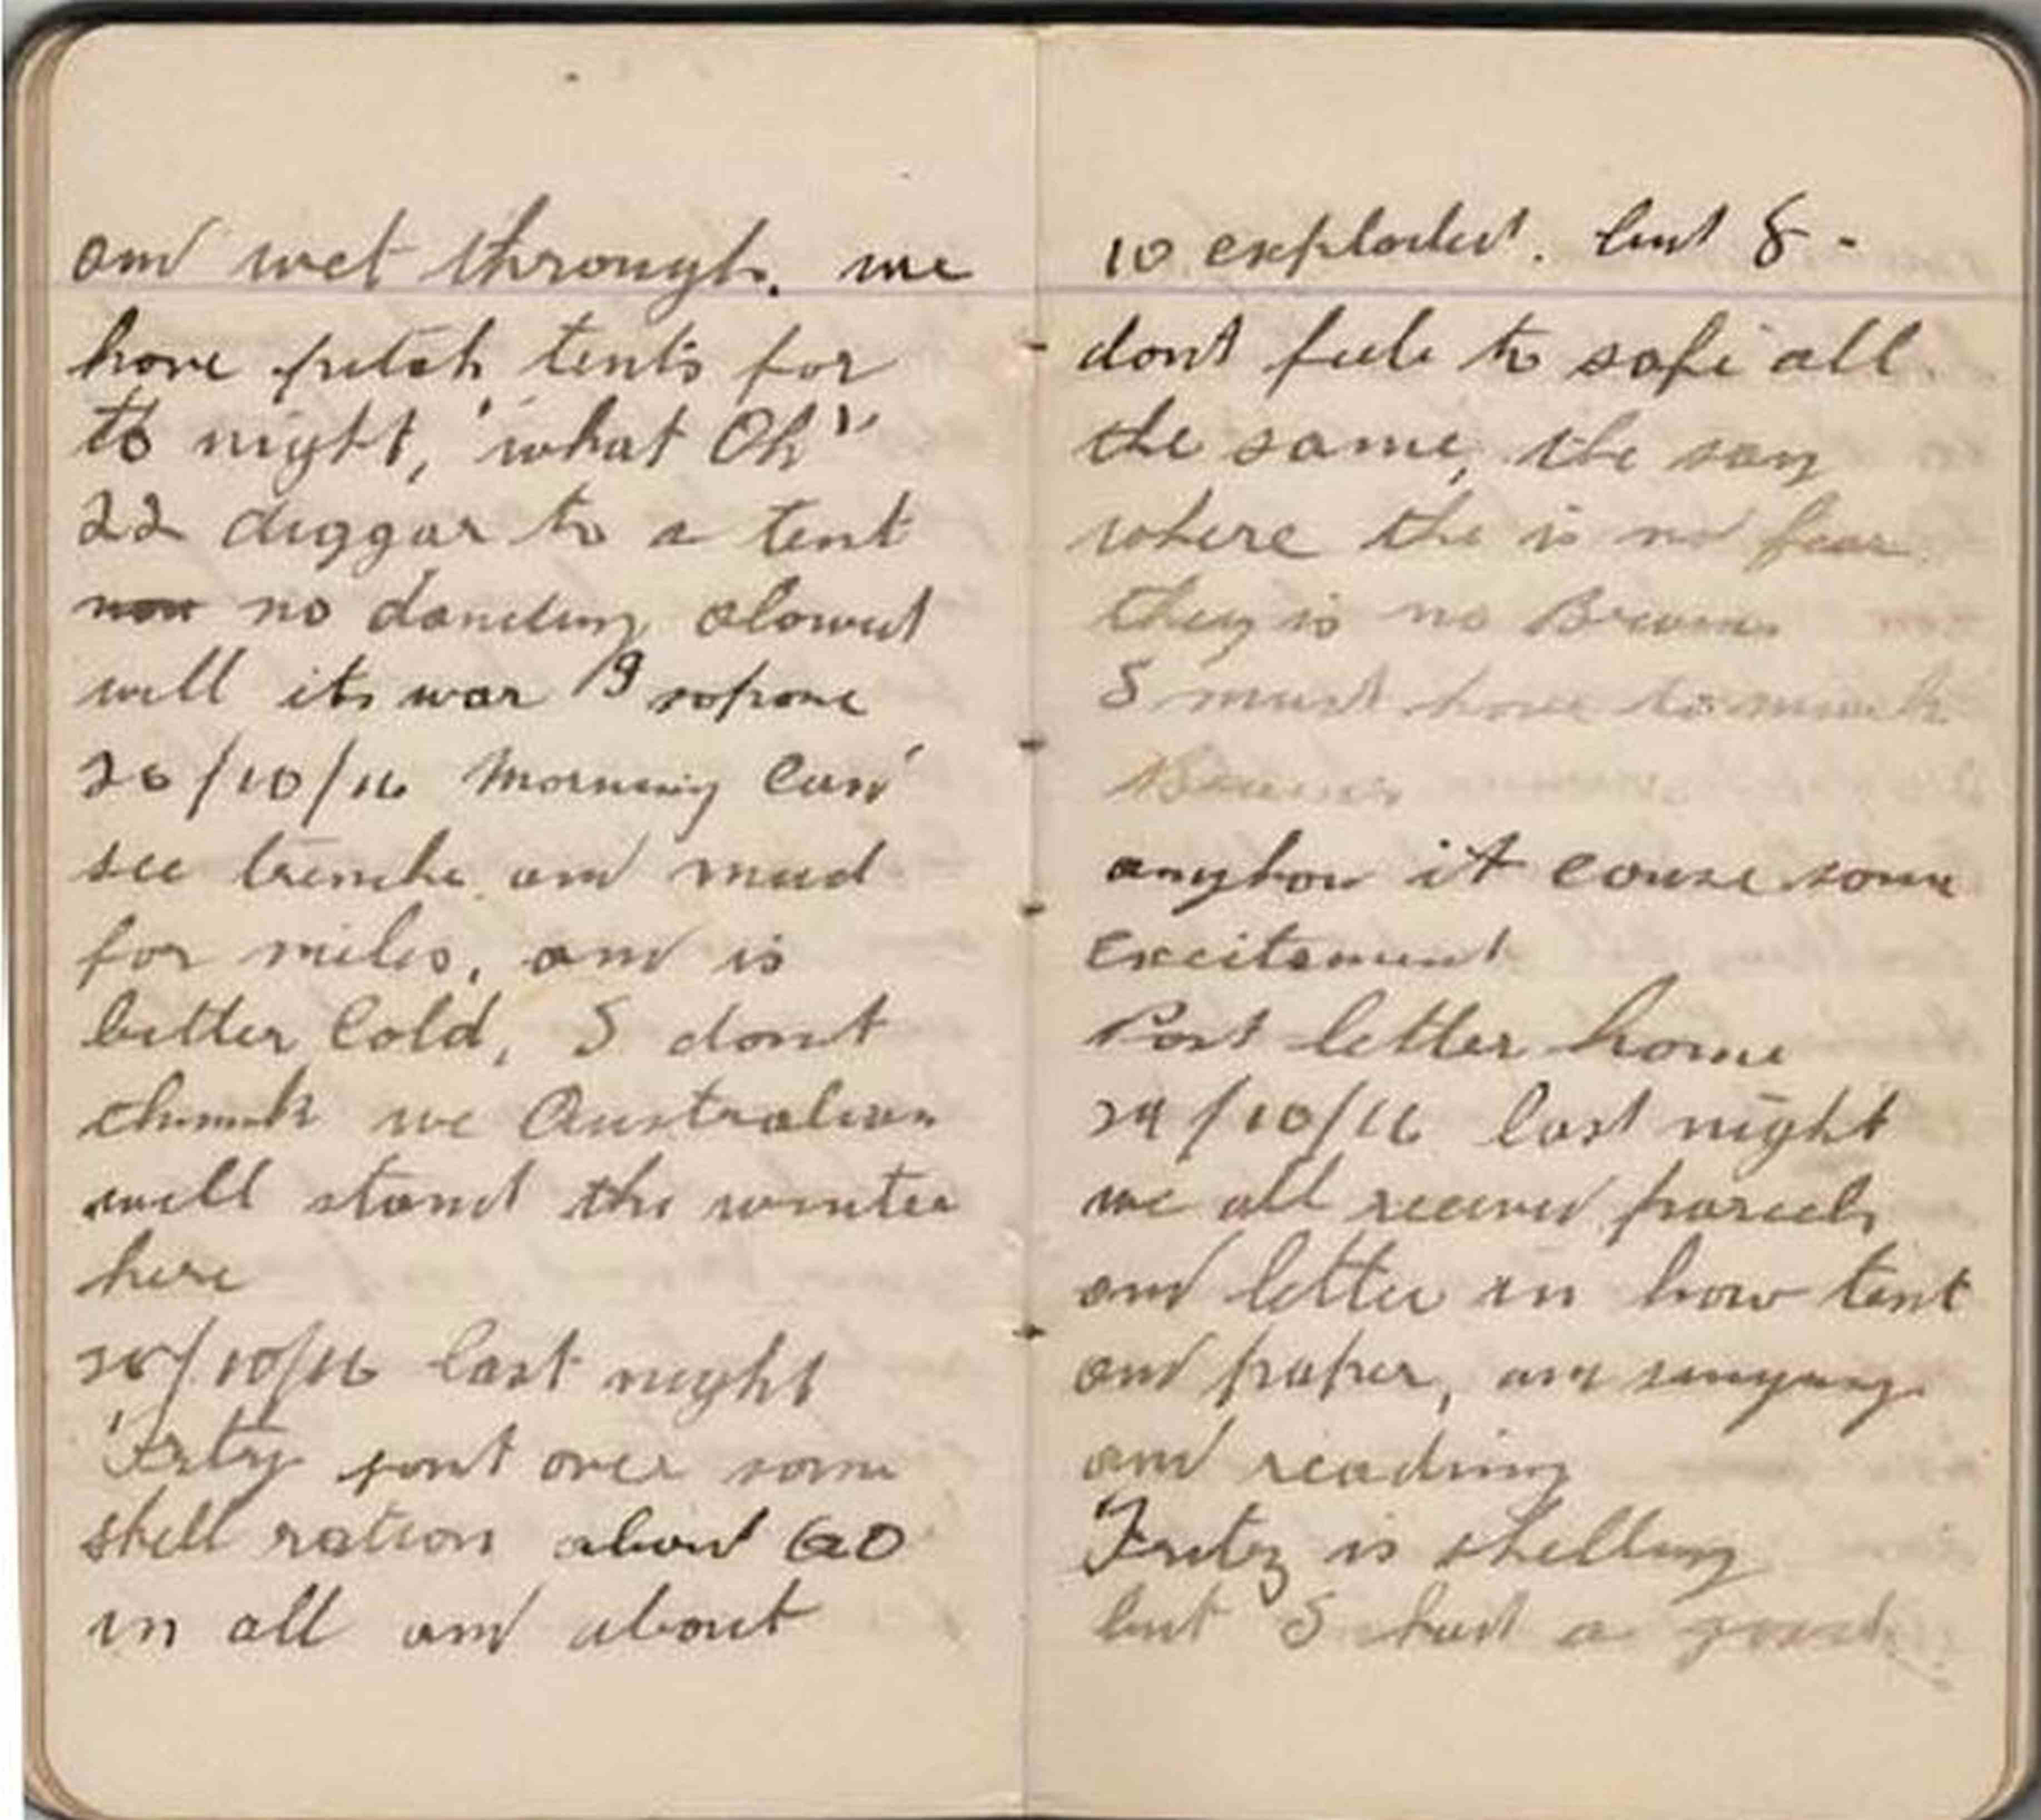 and wet through. we
have pitch tents for
to night, "what Oh"
22 diggar to a tent
no dancing alowed
will its war I sopose
26/10/16 Morning Can
see trenche and mud
for miles, and is
bitter Cold, I dont
think we Australian
will stand the winter
here
28/10/16 last night
Frity sent over some
shell ration about 60
in all and about
10 exploded. but I -
dont feele to safe all
the same, the say
where the is no fear
they is no Brains
I must have to much
Brains
anyhow it couse some
excitement
Post letter home
29/10/16 last night
we all received parcels
and letter in how tent
and paper,
and reading
Fritz is shelling
but I had a good